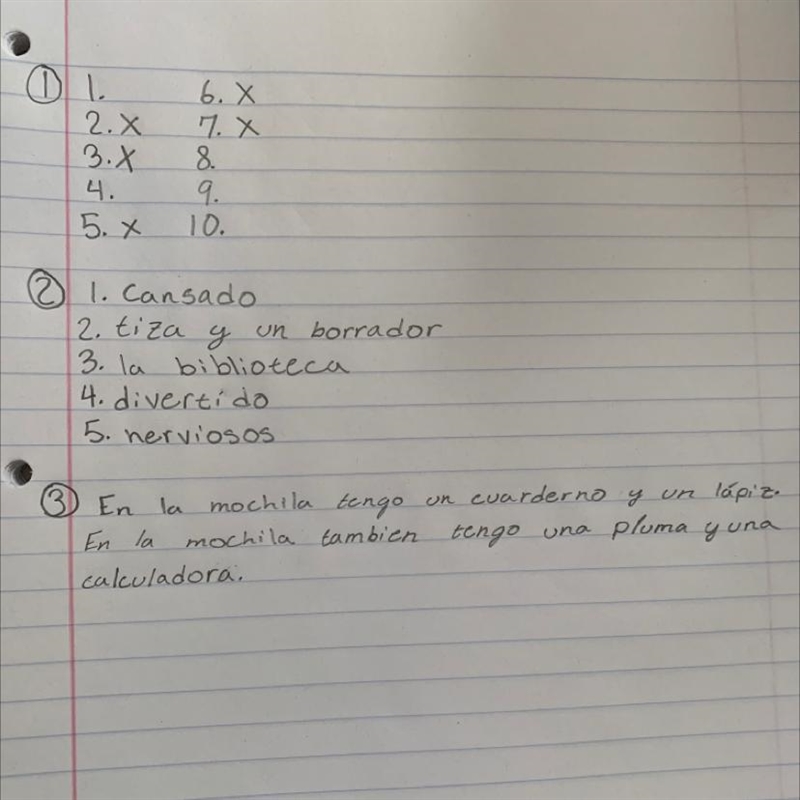 ① 1. 6. x
2. x 7. x
3. x 8.
4. 9.
5. x 10.
② 1. Cansado
2. tiza y un borrador
3. la biblioteca
4. divertido
5. nerviosos
③ En la mochila tengo un cuarderno y un lápiz.
En la mochila tambien tengo una pluma y una
calculadora.